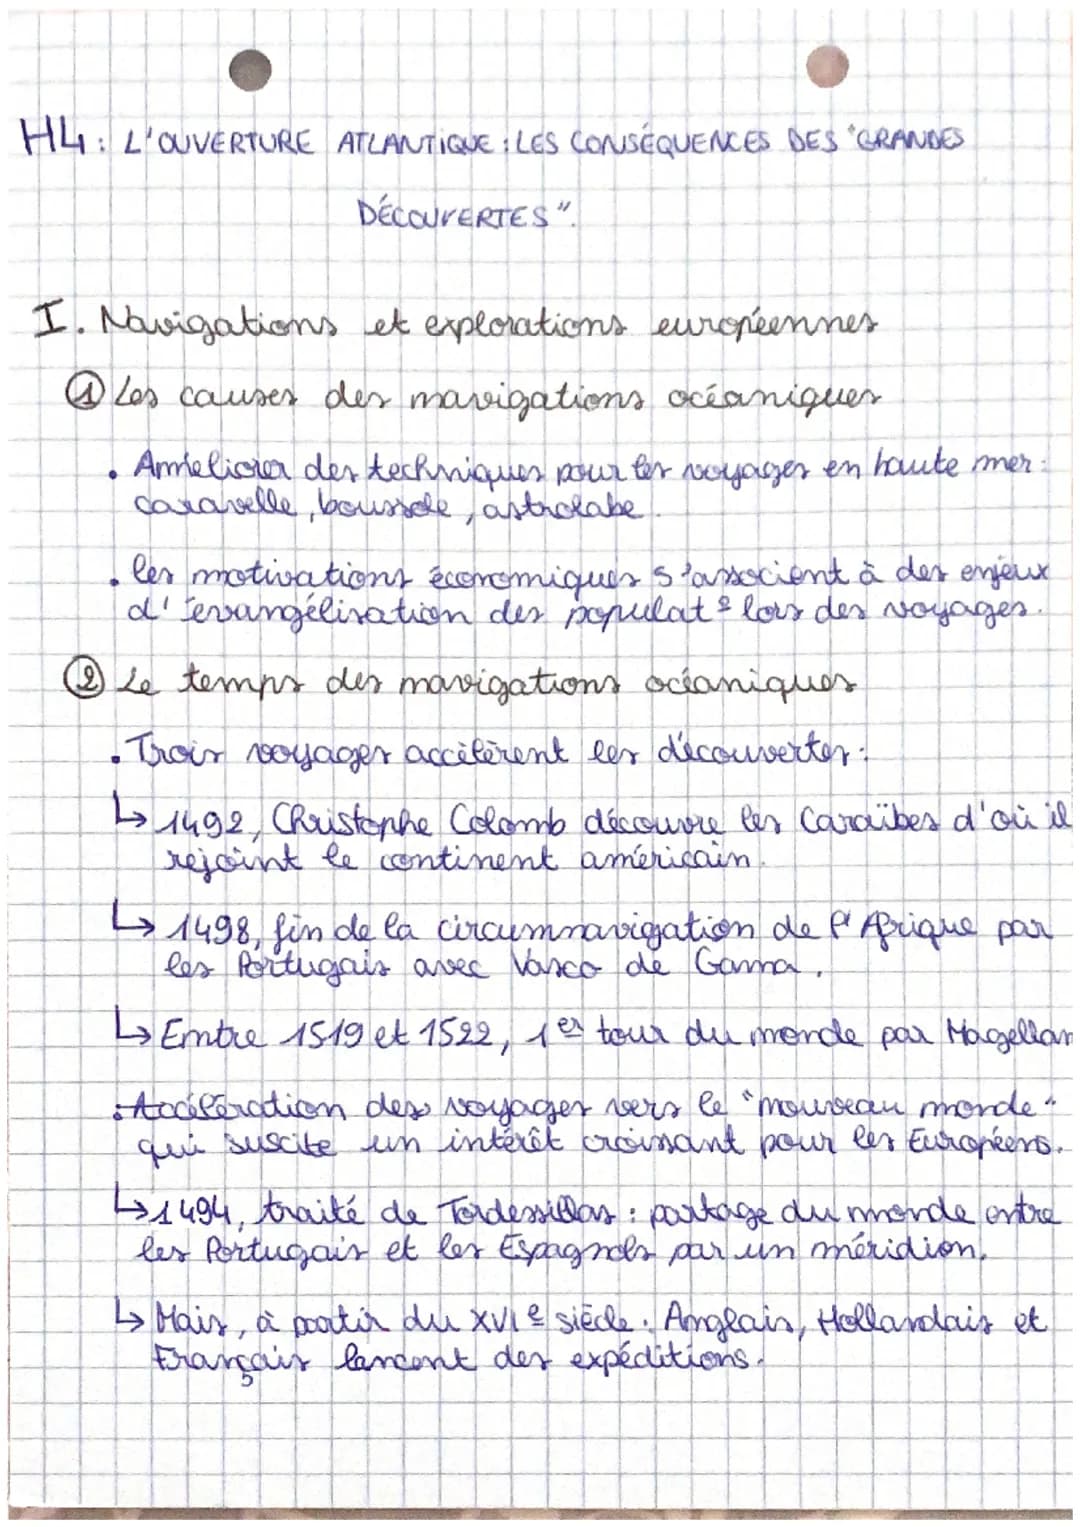 H4 : L'OUVERTURE ATLANTIQUE : LES CONSÉQUENCES DES "GRANDES
DÉCOUVERTES".
I. Navigations et explorations européennes
① Les causes des navigations océaniques
. Améliorer des techniques pour les voyages en haute mer :
caravelle, boussole, astrolabe.
. les motivations économiques s'associent à des enjeux
d'évangélisation des populat° lors des voyages.
② Le temps des navigations océaniques
. Trois voyages accélèrent les découvertes :
↳ 1492, Christophe Colomb découvre les Caraïbes d'où il
rejoint le continent américain.
↳ 1498, fin de la circumnavigation de l'Afrique par
les Portugais avec Vasco de Gama.
↳ Entre 1519 et 1522, 1er tour du monde par Magellan
. Accélération des voyages vers le "nouveau monde"
qui suscite un intérêt croissant pour les Européens.
↳ 1494, traité de Tordessillas : partage du monde entre
les Portugais et les Espagnols par un méridion.
↳ Mais, à partir du XVIe siècle : Anglais, Hollandais et
Français lancent des expéditions.